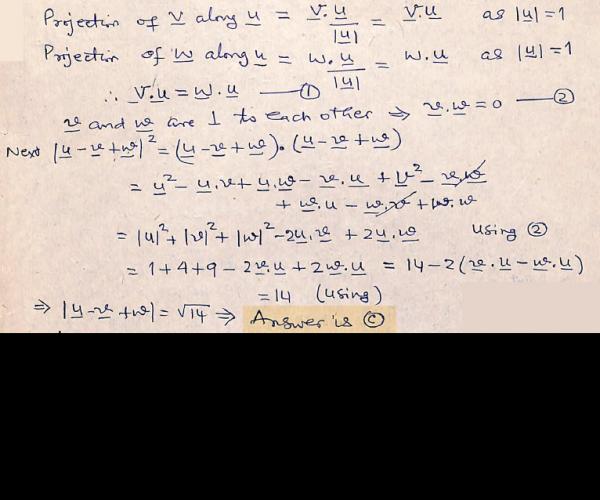 Projection of v along u = v.u / |u| = v.u as |u|=1
Projection of w along u = w.u / |u| = w.u as |u|=1
∴ v.u = w.u —— ①
v and w are ⊥ to each other ⇒ v.w = 0 —— ②
Next |u-v+w|² = (u-v+w).(u-v+w)
= u² - u.v + u.w - v.u + v² - v.w
+ w.u - w.v + w.w
= |u|² + |v|² + |w|² - 2u.v + 2u.w using ②
= 1+4+9 - 2v.u + 2w.u = 14 - 2(v.u - w.u)
= 14 (using)
⇒ |u-v+w| = √14 ⇒ Answer is ©